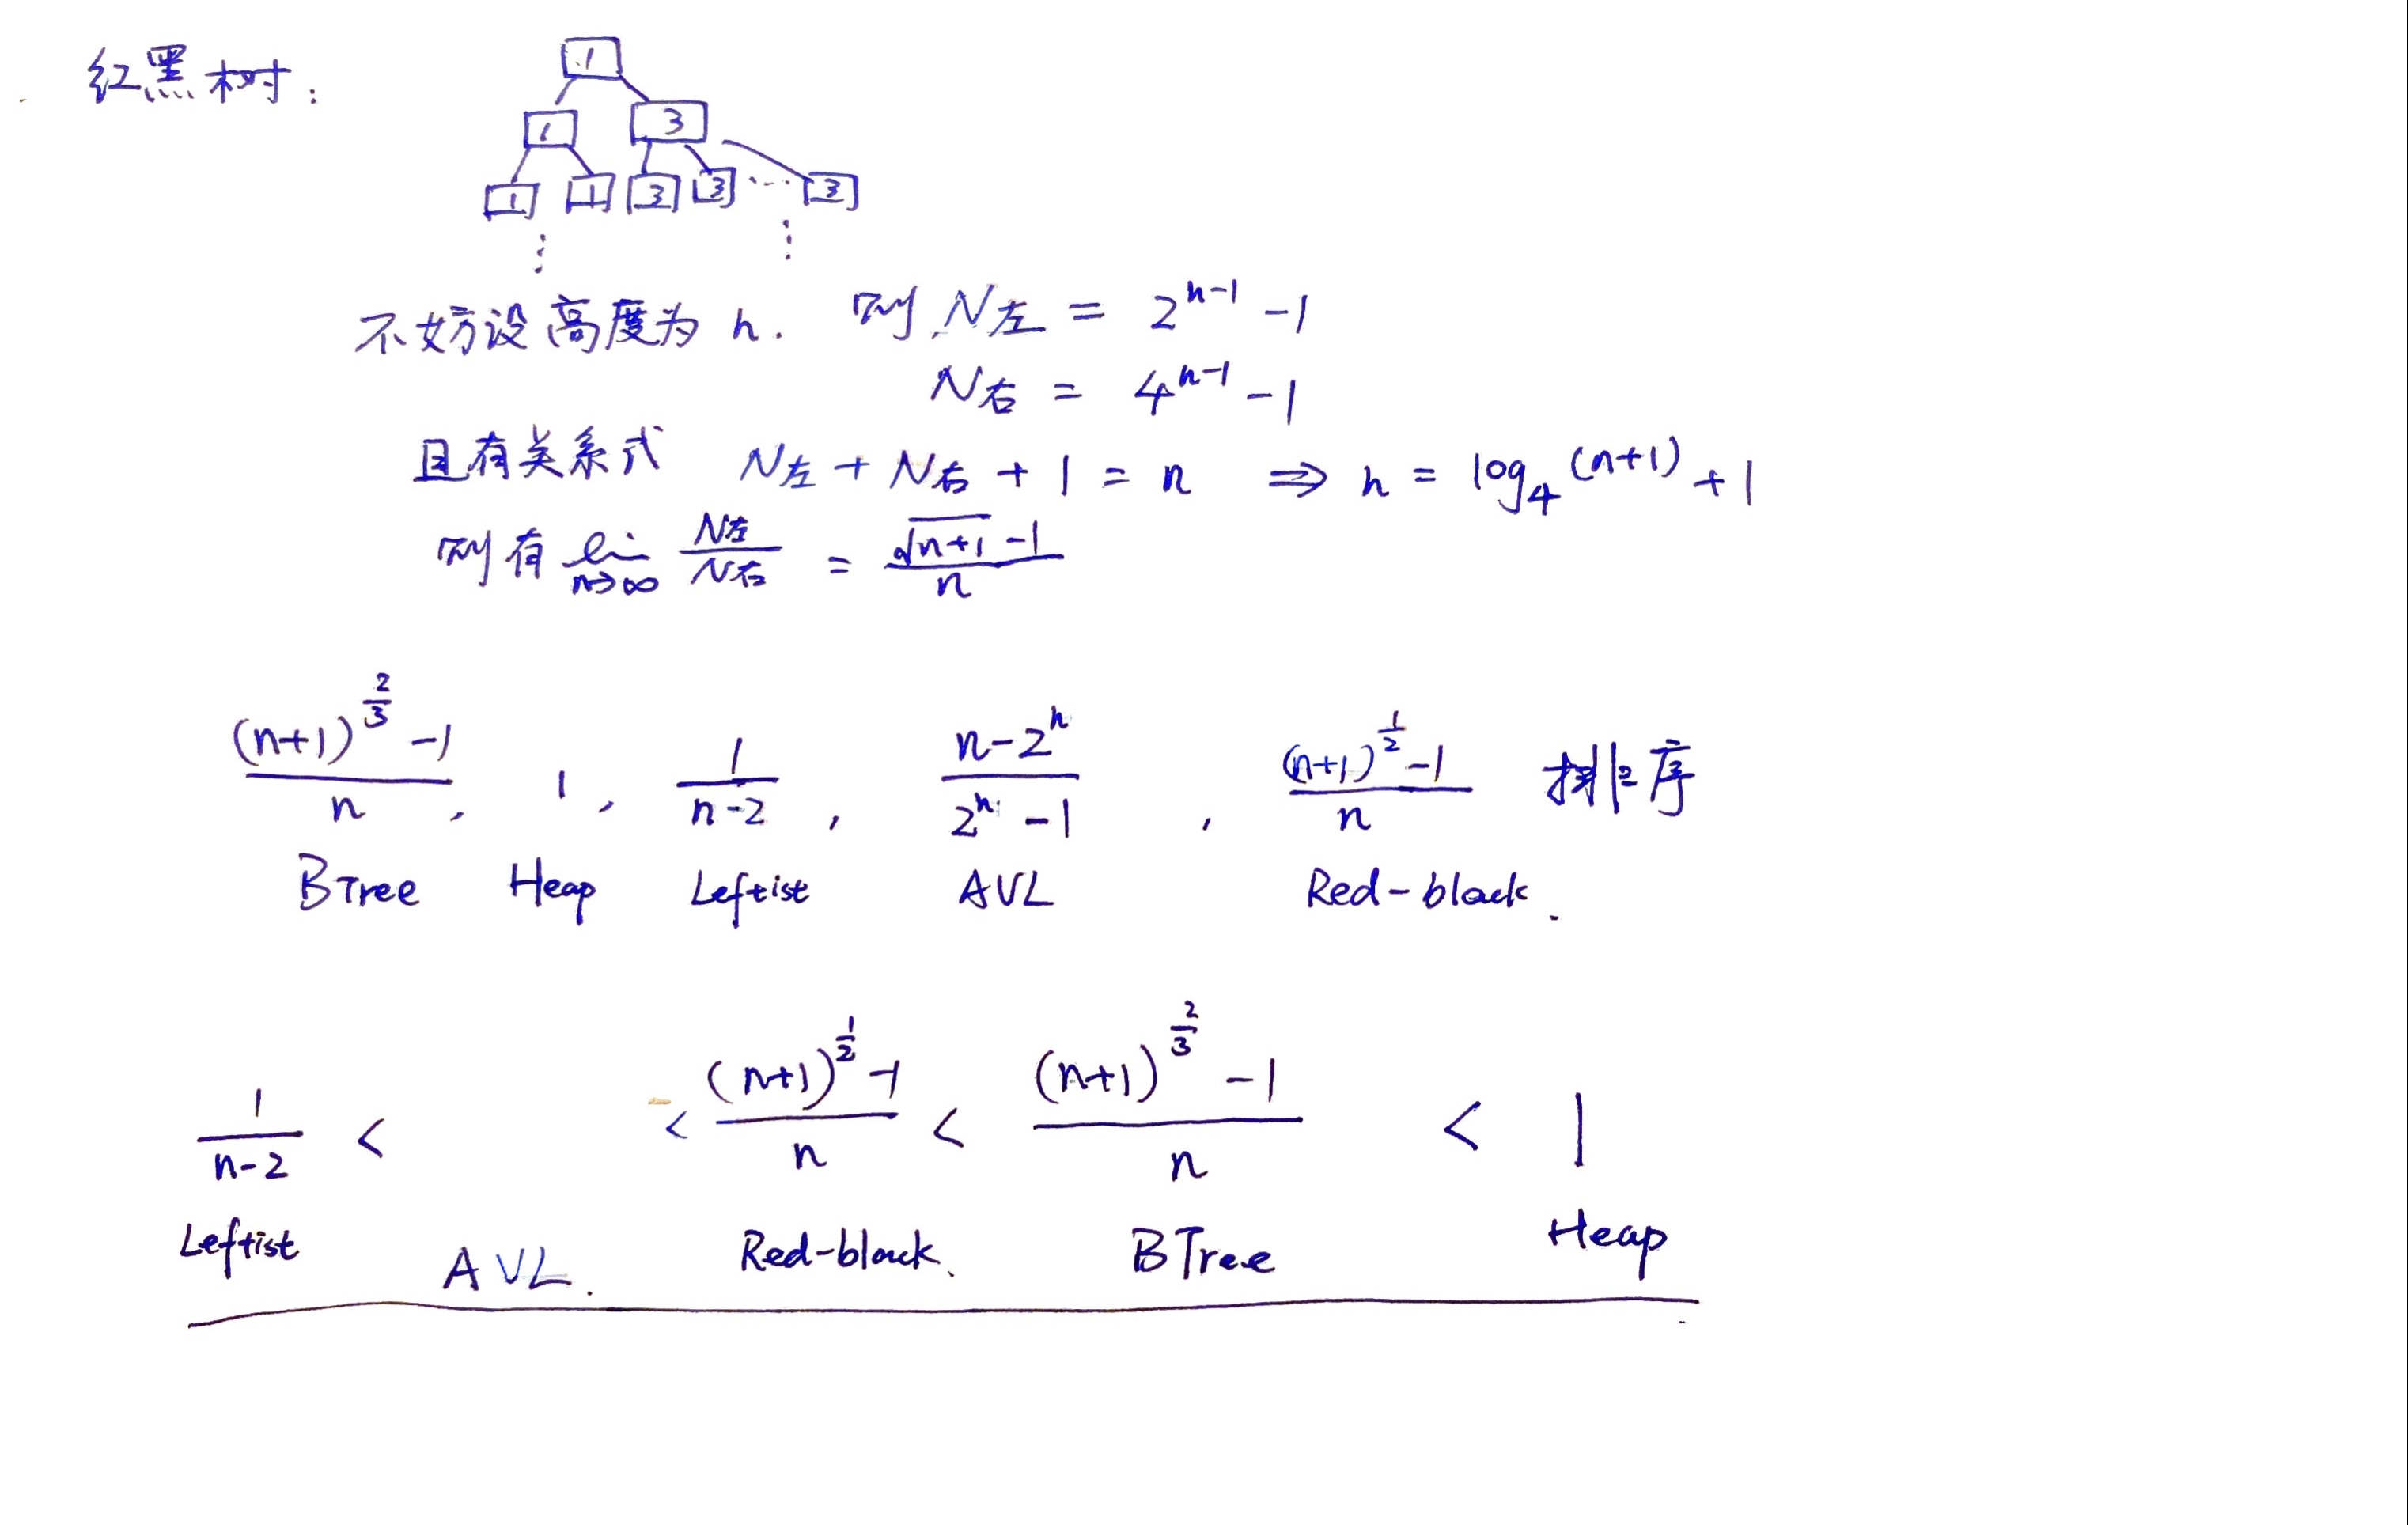 红黑树:
1
1 3
1 1 3 3 ... 3
不妨设高度为 h. 则 N左 = 2^{h-1} - 1
N右 = 4^{h-1} - 1
且有关系式 N左 + N右 + 1 = n ⇒ h = log_4 (n+1) + 1
则有 lim_{n→∞} N左/N右 = (√(n+1) - 1)/n
((n+1)^{2/3} - 1)/n , 1 , 1/(n-2) , (n-2^h)/(2^h - 1) , ((n+1)^{1/2} - 1)/n 排序
BTree Heap Leftist AVL Red-black.
1/(n-2) < < ((n+1)^{1/2} - 1)/n < ((n+1)^{2/3} - 1)/n < 1
Leftist AVL. Red-black. BTree Heap